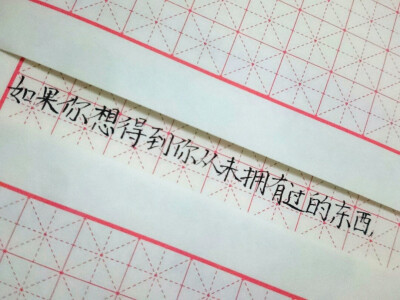 如果你想得到你从未拥有过的东西,